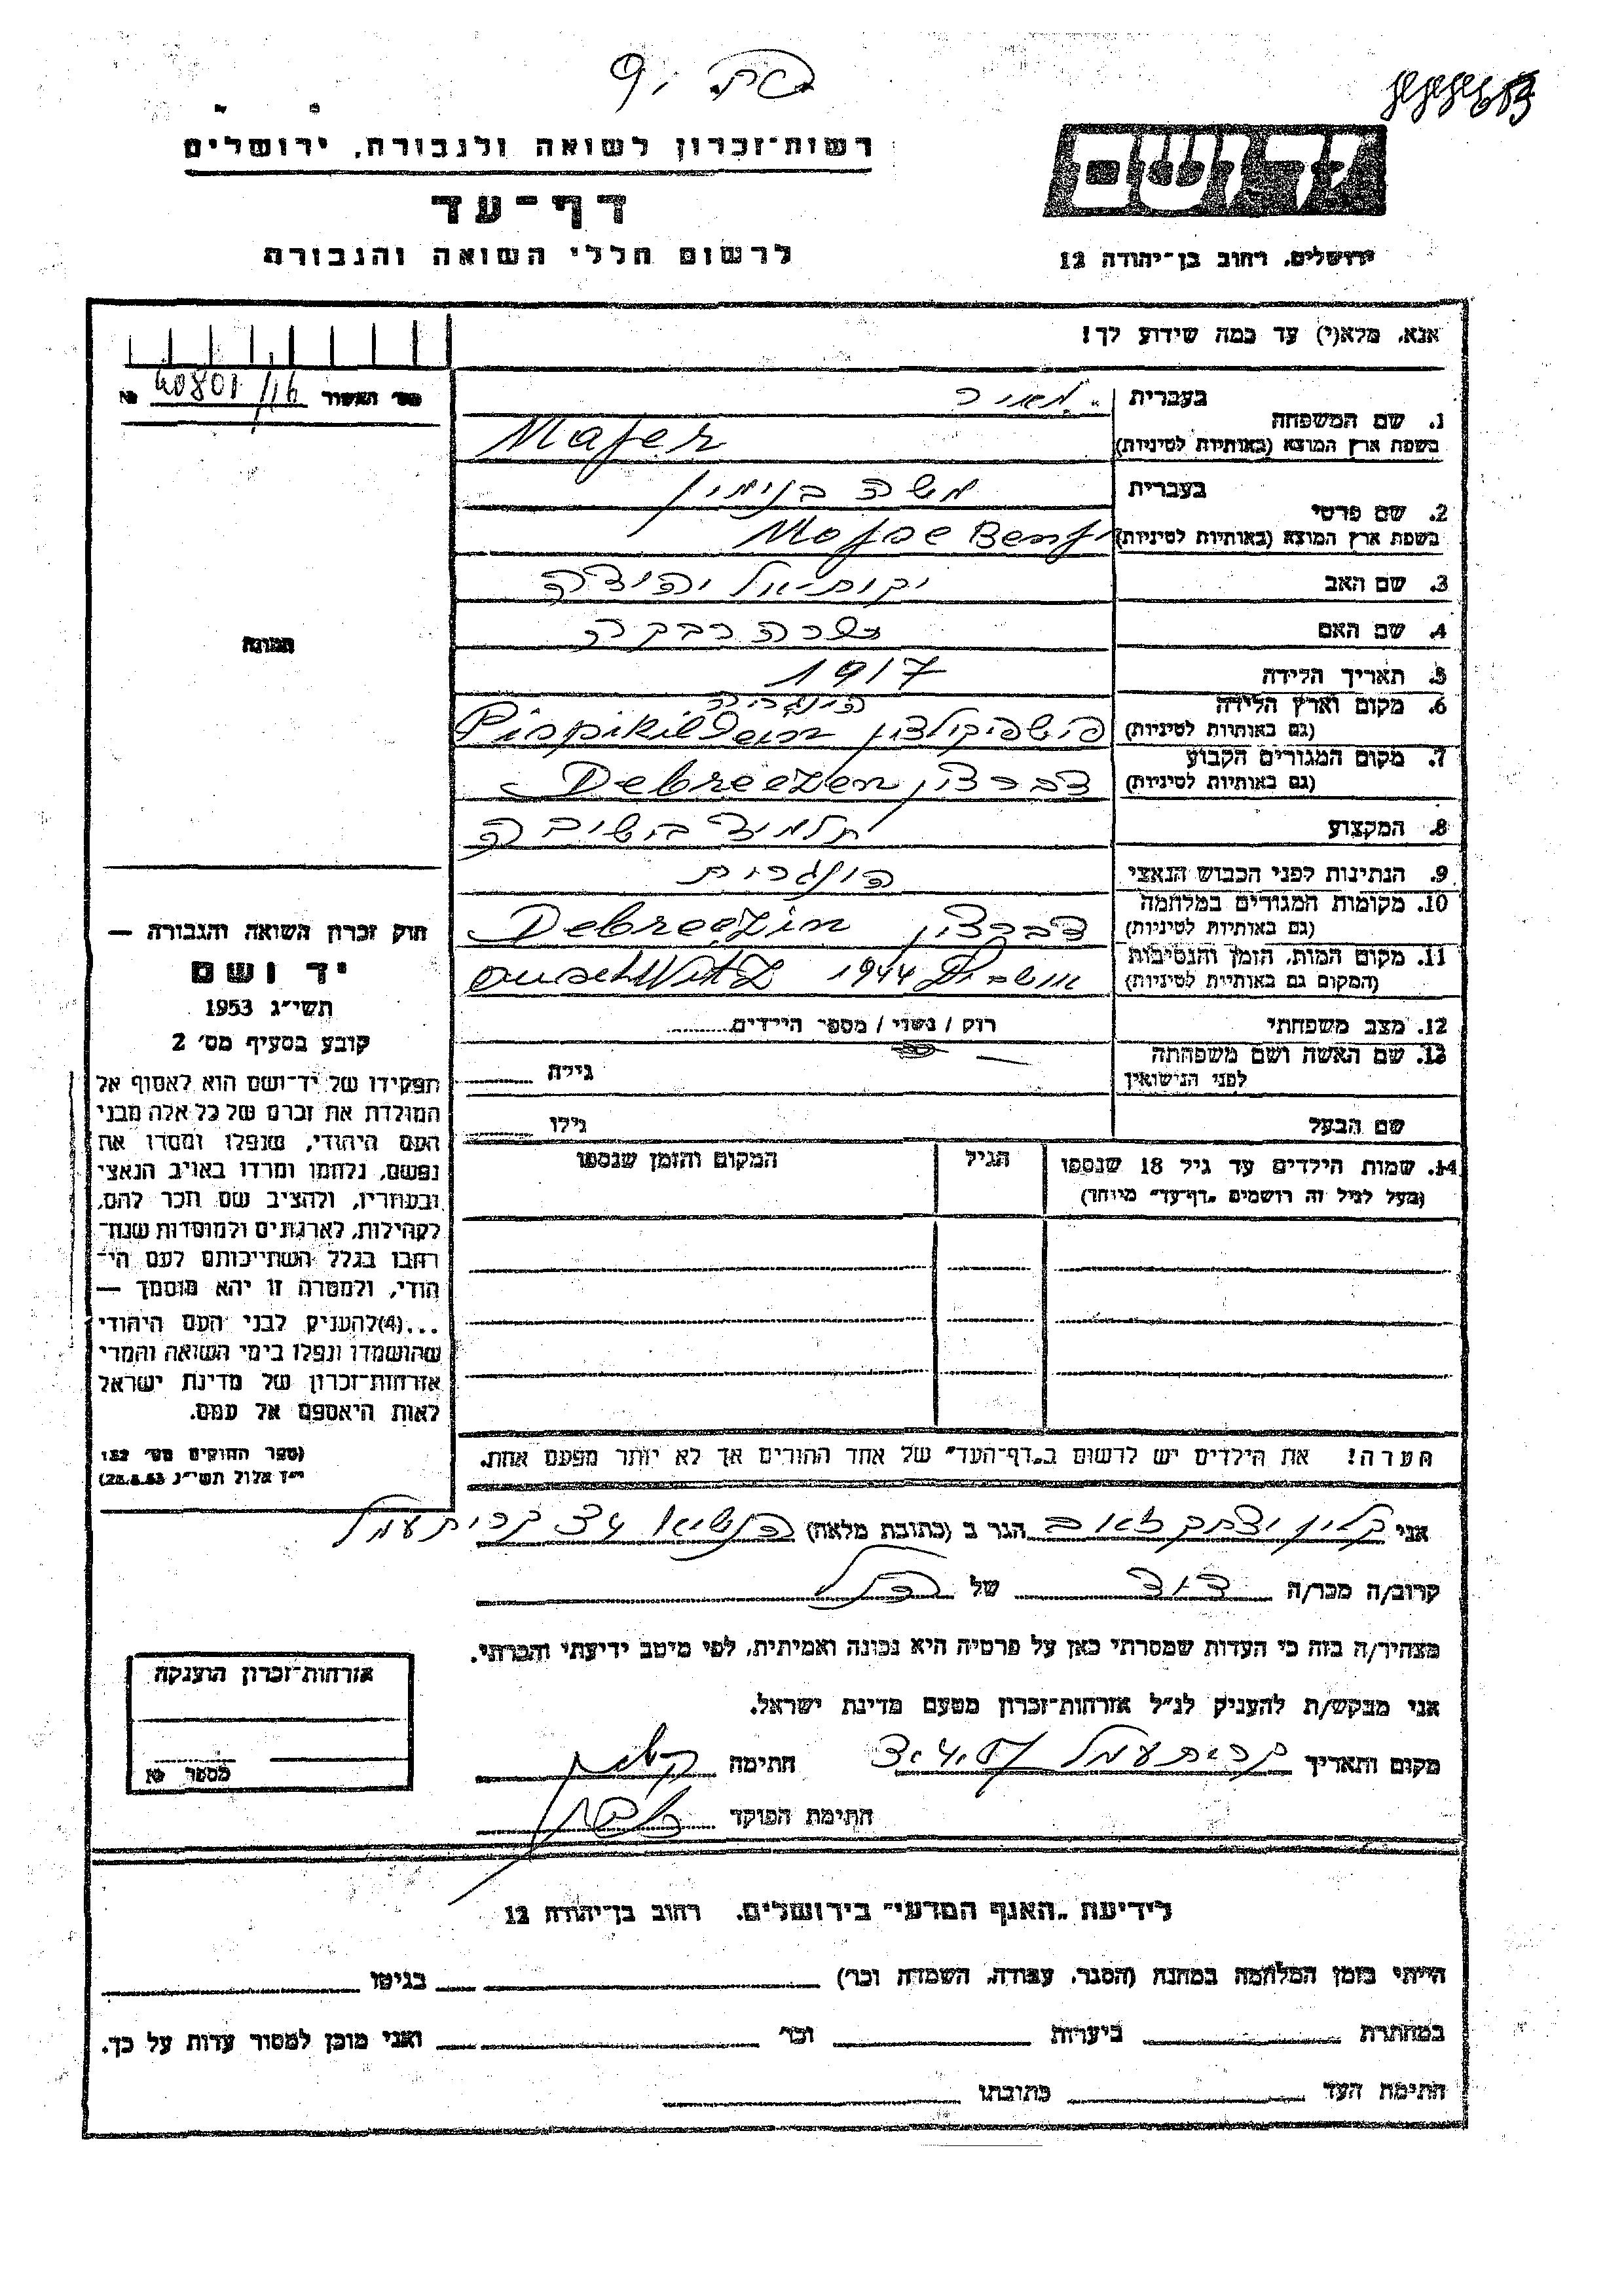 רשות־זכרון לשואה ולגבורה, ירושלים
דף־עד
לרשום חללי השואה והגבורה
ירושלים, רחוב בן־יהודה 12
אנא, מלא(י) עד כמה שידוע לך!
40801/16
1. שם המשפחה בעברית מאיר
בשפת ארץ המוצא (באותיות לטיניות) Majer
2. שם פרטי בעברית משה בנימין
בשפת ארץ המוצא (באותיות לטיניות) Mojse Benj
3. שם האב יקותיאל יהודה
4. שם האם שרה רבקה
5. תאריך הלידה 1917
6. מקום וארץ הלידה הונגריה
(גם באותיות לטיניות)
7. מקום המגורים הקבוע
(גם באותיות לטיניות) דברצין Debreczen
8. המקצוע תלמיד הישיבה
9. הנתינות לפני הכבוש הנאצי הונגרית
10. מקומות המגורים במלחמה
(גם באותיות לטיניות) דברצין Debreczin
11. מקום המות, הזמן והנסיבות
(המקום גם באותיות לטיניות) 1944 auschWitZ
12. מצב משפחתי רוק / נשוי / מספר הילדים
13. שם האשה ושם משפחתה
לפני הנישואין גילה
שם הבעל גילו
14. שמות הילדים עד גיל 18 שנספו הגיל המקום והזמן שנספו
(מעל לגיל זה רושמים „דף־עד” מיוחד)
הערה! את הילדים יש לרשום ב„דף־העד” של אחד ההורים אך לא יותר מפעם אחת.
התמונה
חוק זכרון השואה והגבורה —
יד ושם
תשי״ג 1953
קובע בסעיף מס׳ 2
תפקידו של יד־ושם הוא לאסוף אל
המולדת את זכרם של כל אלה מבני
העם היהודי, שנפלו ומסרו את
נפשם, נלחמו ומרדו באויב הנאצי
ובעוזריו, ולהציב שם וזכר להם,
לקהילות, לארגונים ולמוסדות שנח־
רבו בגלל השתייכותם לעם הי־
הודי, ולמטרה זו יהא מוסמך —
...(4)להעניק לבני העם היהודי
שהושמדו ונפלו בימי השואה והמרי
אזרחות־זכרון של מדינת ישראל
לאות היאספם אל עמם.
(ספר החוקים מס׳ 132
י״ז אלול תשי״ג 28.8.53)
אני קליין יצחק זאב הגר ב (כתובת מלאה) הנשיא קרית עמל
קרוב/ה מכר/ה דוד של הנ״ל
מצהיר/ה בזה כי העדות שמסרתי כאן על פרטיה היא נכונה ואמיתית, לפי מיטב ידיעתי והכרתי.
אני מבקש/ת להעניק לנ״ל אזרחות־זכרון מטעם מדינת ישראל.
מקום ותאריך קרית עמל חתימה
חתימת הפוקד
אזרחות־זכרון הוענקה
מספר №
לידיעת „האגף המדעי” בירושלים, רחוב בן־יהודה 12
הייתי בזמן המלחמה במחנה (הסגר, עבודה, השמדה וכו׳) בגיטו
במחתרת ביערות וכו׳ ואני מוכן למסור עדות על כך.
חתימת העד כתובתו